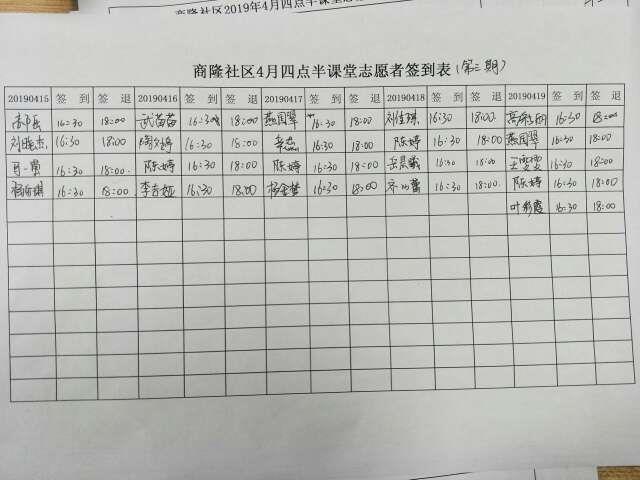 商隆社区2019年4月四点半课堂志愿者
商隆社区4月四点半课堂志愿者签到表(第三期)
20190415 签 到 签 退 20190416 签 到 签 退 20190417 签 到 签 退 20190418 签 到 签 退 20190419 签 到 签 退
16:30 18:00 武苗苗 16:30 18:00 燕国翠 16:30 18:00 刘佳琪 16:30 18:00 16:30 18:00
刘晓杰 16:30 18:00 16:30 18:00 16:30 18:00 陈婷 16:30 18:00 燕国翠 16:30 18:00
16:30 18:00 陈婷 16:30 18:00 陈婷 16:30 18:00 岳晨曦 16:30 18:00 王雯雯 16:30 18:00
16:30 18:00 李香娅 16:30 18:00 杨金梦 16:30 18:00 16:30 18:00 陈婷 16:30 18:00
叶彩霞 16:30 18:00